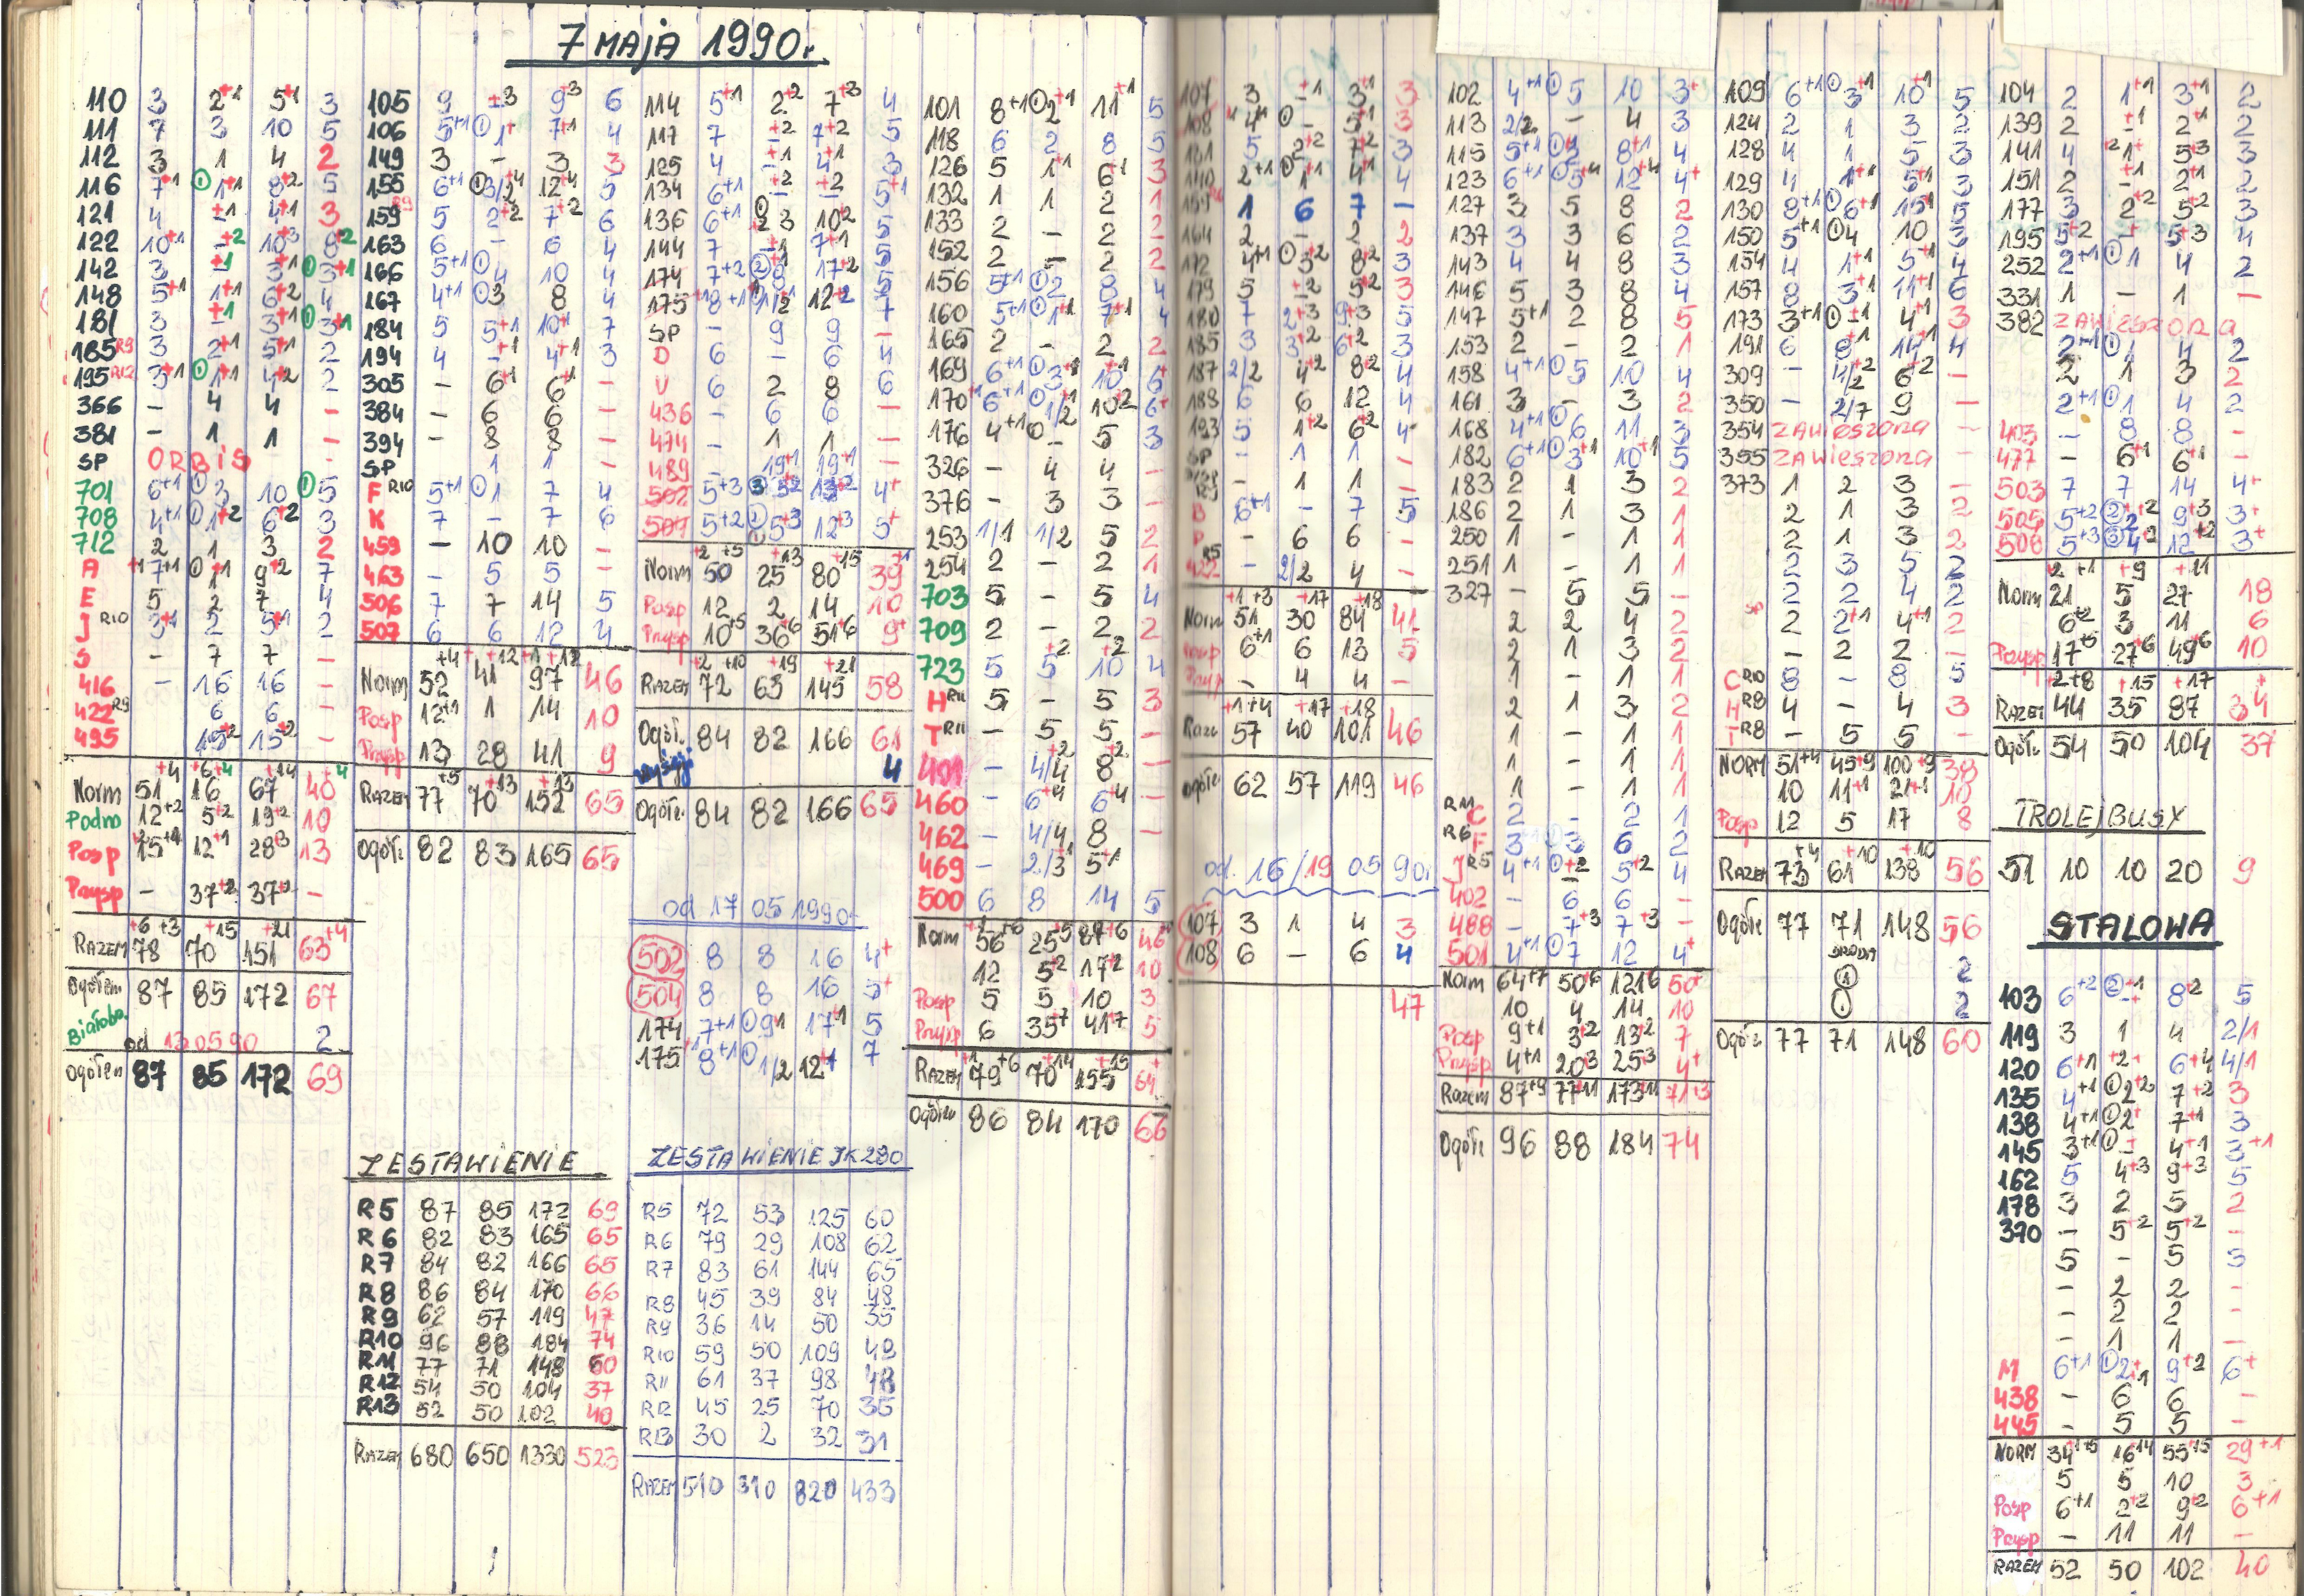 7 MAJA 1990r.
110 3 2+1 5+1 3
111 7 3 10 5
112 3 1 4 2
116 7+1 ①1+1 8+2 5
121 4 -+1 4+1 3
122 10+1 -+2 10+3 8+2
142 3 -+1 3+1 ①3+1
148 5+1 1+1 6+2 4
181 3 -+1 3+1 ①3+1
185 R9 3 2+1 5+1 2
195 R12 3+1 ①1+1 4+2 2
366 - 4 4 -
381 - 1 1 -
SP ORBIS
701 6+1 ①3 10 ①5
708 4+1 ①1+2 6+2 3
712 2 1 3 2
A 7+1 ①1+1 9+2 7
E 5 2 7 4
J R10 3+1 2 5+1 2
S - 7 7 -
416 - 16 16 -
422 R9 6 6 -
495 15+2 15+2 -
Norm 51+4 16 67+14 40+4
Podm 12+2 5+2 19+2 10
Posp 15+4 12+1 28+3 13
Przysp - 37+2 37+2 -
RAZEM 78 70+15 151+21 63+4
Ogółem 87 85 172 67
Białobo. od 13.05.90 2
Ogółem 87 85 172 69
105 9 -+3 9+3 6
106 5+1 ①1+ 7+1 4
149 3 - 3 3
155 6+1 ①3/2+4 12+4 5
159 R9 5 2+2 7+2 6
163 6 - 6 4
166 5+1 ①4 10 4
167 4+1 ①3 8 4
184 5 5+1 10+1 7
194 4 -+1 4+1 3
305 - 6+1 6+1 -
384 - 6 6 -
394 - 8 8 -
SP 1 1 -
F R10 5+1 ①1 7 4
K 7 - 7 6
459 - 10 10 -
463 - 5 5 -
506 7 7 14 5
507 6 6 12 4
Norm 52+4 41+12 97+12 46
Posp 12+1 1 14 10
Przysp 13 28 41 9
RAZEM 77+5 70+13 152+13 65
Ogółe 82 83 165 65
ZESTAWIENIE
R5 87 85 172 69
R6 82 83 165 65
R7 84 82 166 65
R8 86 84 170 66
R9 62 57 119 47
R10 96 88 184 74
R11 77 71 148 60
R12 54 50 104 37
R13 52 50 102 40
RAZEM 680 650 1330 523
114 5+1 2+2 7+3 4
117 7 -+2 7+2 5
125 4 -+1 4+1 3
134 6+1 -+2 -+2 5+1
136 6+1 ①23 10+2 5
144 7 -+1 7+1 5
174 7+2 ②8 17+2 5
175 8+1 1/2 12+2 7
SP - 9 9 -
D 6 - 6 4
U 6 2 8 6
436 - 6 6 -
474 - 1 1 -
489 - 19+1 19+1 -
502 5+3 ③5+2 13+2 4+
504 5+2 ②5+3 12+3 5+
Norm 50+5 25+13 80+15 39+1
Posp 12 2 14 10
Przysp 10+5 36+6 51+6 9+
RAZEM 72+10 63+19 145+21 58
Ogółe 84 82 166 61
Wyścigi 4
Ogółe 84 82 166 65
od 17 05 1990r
502 8 8 16 4+
504 8 8 16 5+
174 7+1 ①9+1 17+1 5
175 8+1 ①1/2 12+1 7
ZESTAWIENIE JK 280
R5 72 53 125 60
R6 79 29 108 62
R7 83 61 144 65
R8 45 39 84 48
R9 36 14 50 35
R10 59 50 109 48
R11 61 37 98 48
R12 45 25 70 35
R13 30 2 32 31
RAZEM 510 310 820 433
101 8+1 ①2+1 11+1 5
118 6 2 8 5
126 5 1+1 6+1 3
132 1 1 2 1
133 2 - 2 2
152 2 - 2 2
156 5+1 ①2 8 4
160 5+1 ①1+1 7+1 4
165 2 - 2 2
169 6+1 ①3+1 10+1 6+
170 6+1 ①1/2 10+2 6+
176 4+1 0 5 3
326 - 4 4 -
376 - 3 3 -
253 1/1 1/2 5 2
254 2 - 2 1
703 5 - 5 4
709 2 - 2 2
723 5 5+2 10+2 4
H R11 5 - 5 3
T R11 - 5 5 -
401 - 4/4+2 8+2 -
460 - 6+4 6+4 -
462 - 4/4 8 -
469 - 2/3 5+1 -
500 6 8 14 5
Norm 56+6 25+5 87+6 46+
12 5+2 17+2 10
Posp 5 5 10 3
Przysp 6 35+7 41+7 5
RAZEM 79+6 70+14 155+15 64+
Ogółe 86 84 170 66
107 3 -+1 3+1 3
108 4+1 ①- 3
5 2+2 7+2 3
140 2+1 ①1 4+1 4
159 1 6 7 -
164 2 - 2 2
172 4+1 ①5+2 8+2 3
179 5 -+2 5+2 3
180 7 2+3 9+3 5
185 3 3+2 6+2 3
187 2/2 4+2 8+2 4
188 6 6 12 4
193 5 1+2 6+2 4
SP - 1 1 -
- 1 1 -
B 6+1 - 7 5
P - 6 6 -
422 R5 - 2/2 4 -
Norm 51+3 30+17 84+18 41
Posp 6+1 6 13 5
Przysp - 4 4 -
Razem 57+4 40+17 101+18 46
Ogółe 62 57 119 46
od. 16/19 05 90r
107 3 1 4 3
108 6 - 6 4
47
102 4+1 ①5 10 3+
113 2/2 - 4 3
115 5+1 ①2 8+1 4
123 6+1 ①5+4 12+4 4+
127 3 5 8 2
137 3 3 6 2
143 4 4 8 3
146 5 3 8 4
147 5+1 2 8 5
153 2 - 2 1
158 4+1 ①5 10 4
161 3 - 3 2
168 4+1 ①6 11 3
182 6+1 ①3+1 10+1 5
183 2 1 3 2
186 2 1 3 1
250 1 - 1 1
251 1 - 1 1
327 - 5 5 -
2 2 4 2
2 1 3 2
1 - 1 1
2 1 3 2
1 - 1 1
1 - 1 1
1 - 1 1
R11 C 2 - 2 1
R6 F 3 3 6 2
J R5 4+1 ①-+2 5+2 4
402 - 6 6 -
488 - 7+3 7+3 -
501 4+1 ①7 12 4+
Norm 64+7 50+6 121+6 50+
10 4 14 10
Posp 9+1 3+2 13+2 7
Przysp 4+1 20+3 25+3 4+
Razem 87+9 77+11 173+11 71+3
Ogółe 96 88 184 74
109 6+1 ①3+1 10+1 5
124 2 1 3 2
128 4 1 5 3
129 4 1+1 5+1 3
130 8+1 ①6+1 15+1 5
150 5+1 ①4 10 3
154 4 1+1 5+1 4
157 8 3+1 11+1 6
173 3+1 ①-+1 4+1 3
191 6 8+1 14+1 4
309 - 4/2+2 6+2 -
350 - 2/7 9 -
354 ZAWIESZONA -
355 ZAWIESZONA -
373 1 2 3 -
2 1 3 2
2 1 3 2
2 3 5 2
2 2 4 2
SP 2 2+1 4+1 2
- 2 2 -
C R10 8 - 8 5
H R8 4 - 4 3
T R8 - 5 5 -
NORM 51+4 45+9 100+9 38
10 11+1 21+1 10
Posp 12 5 17 8
RAZEM 73+4 61+10 138+10 56
Ogółe 77 71 148 56
ŚRODM
① 2
① 2
Ogół. 77 71 148 60
104 2 1+1 3+1 2
139 2 -+1 2+1 2
141 4 1+2 5+3 3
151 2 -+1 2+1 2
177 3 2+2 5+2 3
195 5+2 -+ 5+3 4
252 2+1 ①1 4 2
331 1 - 1 -
382 ZAWIESZONA
2+1 ①1 4 2
2 1 3 2
2+1 ①1 4 2
403 - 8 8 -
477 - 6+1 6+1 -
503 7 7 14 4+
505 5+2 ②2+2 9+3 3+
508 5+3 ③4+2 12+2 3+
Norm 21+1 5+9 27+11 18
6+2 3 11 6
Przysp 17+5 27+6 49+6 10
RAZEM 44+8 35+15 87+17 34+
Ogółe 54 50 104 37
TROLEJBUSY
51 10 10 20 9
STALOWA
103 6+2 ②-+1 8+2 5
119 3 1 4 2/1
120 6+1 +2+ 6+4 4/1
135 4+1 ①2+2 7+2 3
138 4+1 ①2+ 7+1 3
145 3+1 ①-+ 4+1 3+1
162 5 4+3 9+3 5
178 3 2 5 2
370 - 5+2 5+2 -
5 - 5 5
- 2 2 -
- 2 2 -
- 1 1 -
M 6+1 ①2+1 9+2 6+
438 - 6 6 -
445 - 5 5 -
NORM 34+5 16+14 55+15 29+1
5 5 10 3
Posp 6+1 2+2 9+2 6+1
Przysp - 11 11 -
RAZEM 52 50 102 40